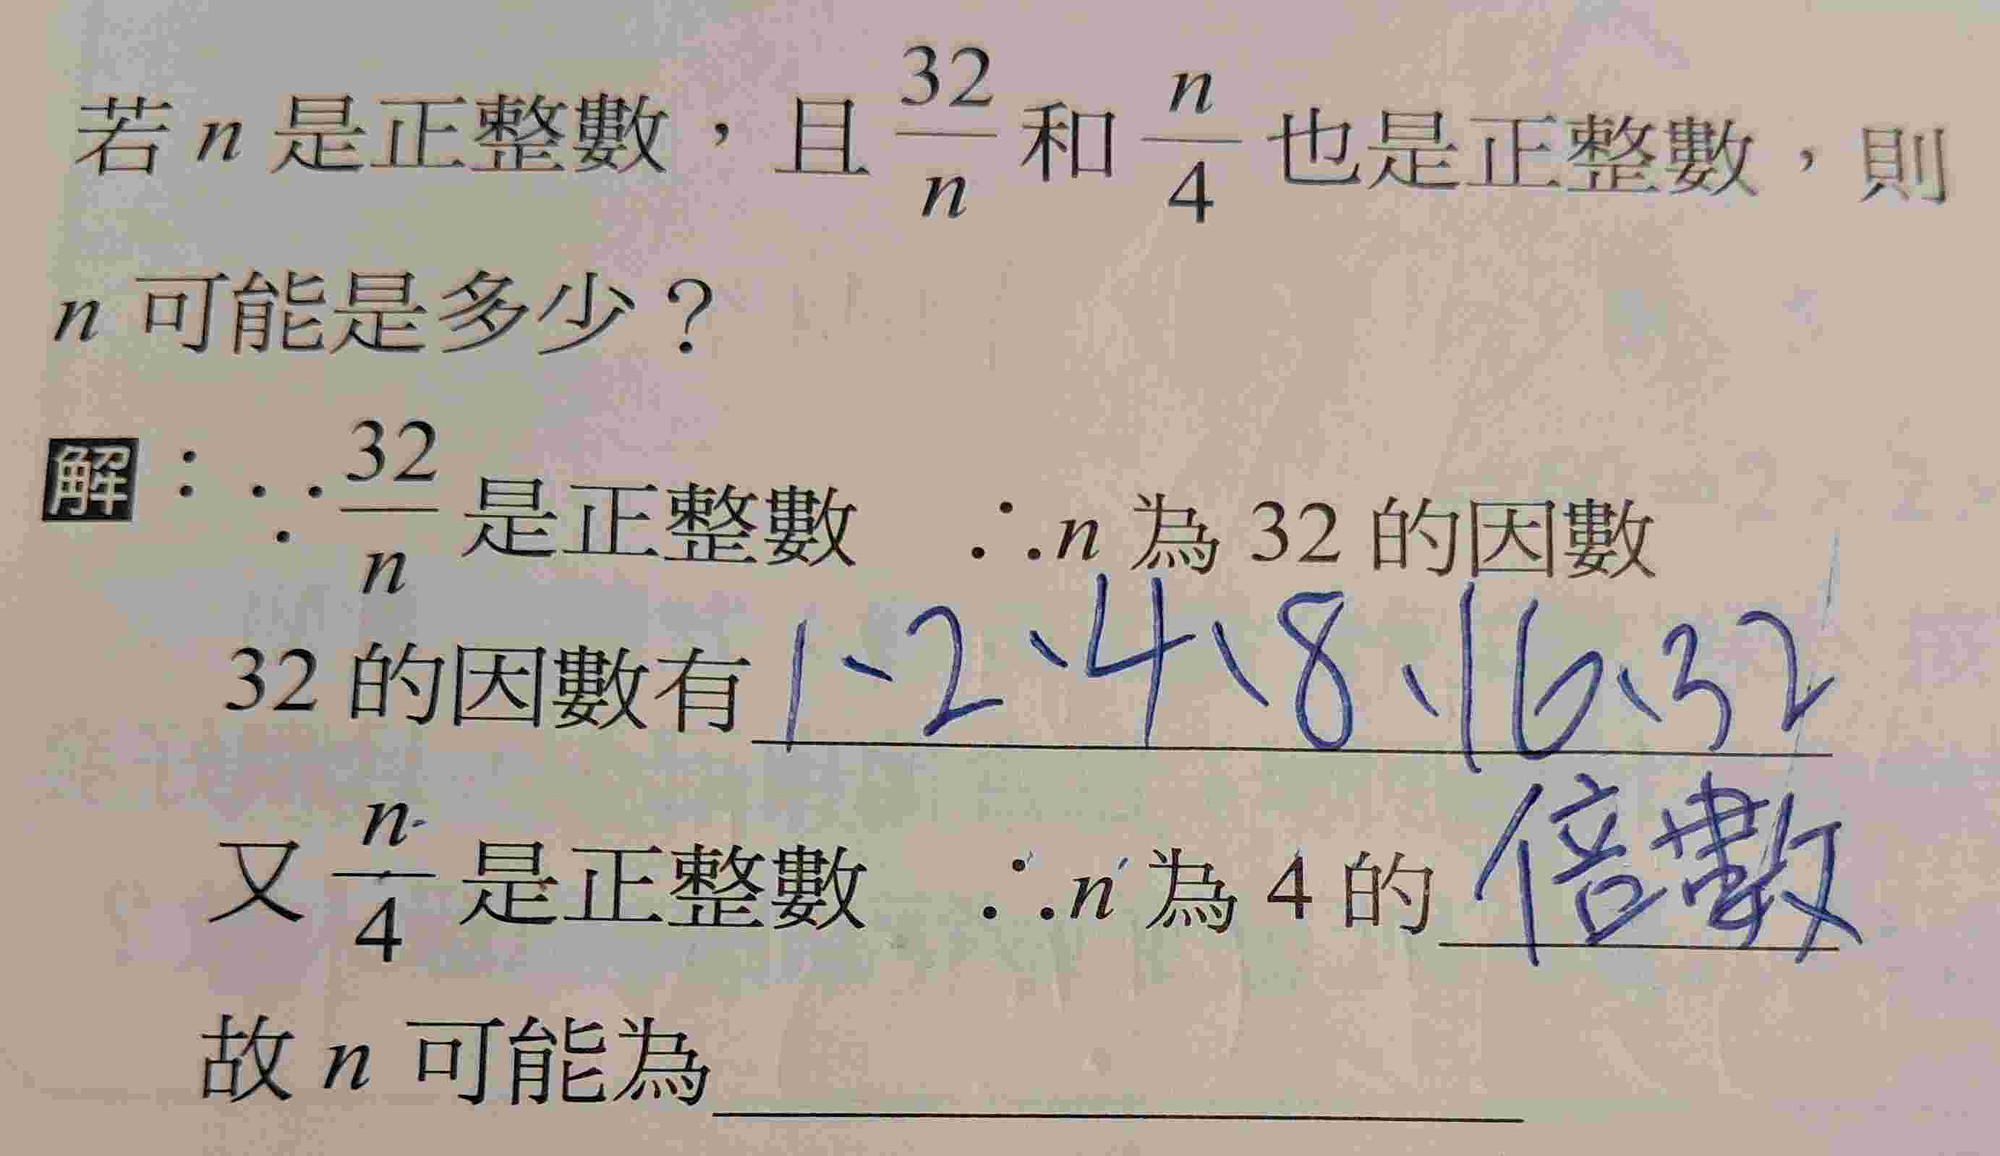 若 n 是正整數，且 32/n 和 n/4 也是正整數，則
n 可能是多少？
解：∵ 32/n 是正整數 ∴n 為 32 的因數
32 的因數有 1、2、4、8、16、32
又 n/4 是正整數 ∴n 為 4 的 倍數
故 n 可能為